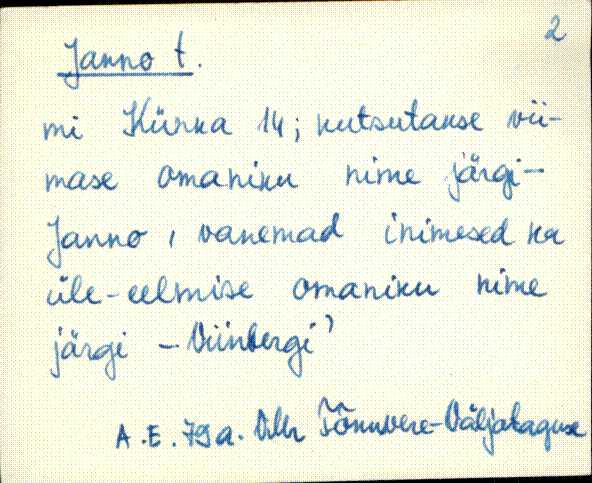 2
Janno t.
mi Kürka 14; kutsutakse vii-
mase omaniku nime järgi -
Janno, vanemad inimesed ka
üle-eelmise omaniku nime
järgi - Viinbergi'
A.E. 79a. Tõnuvere-Väljataguse